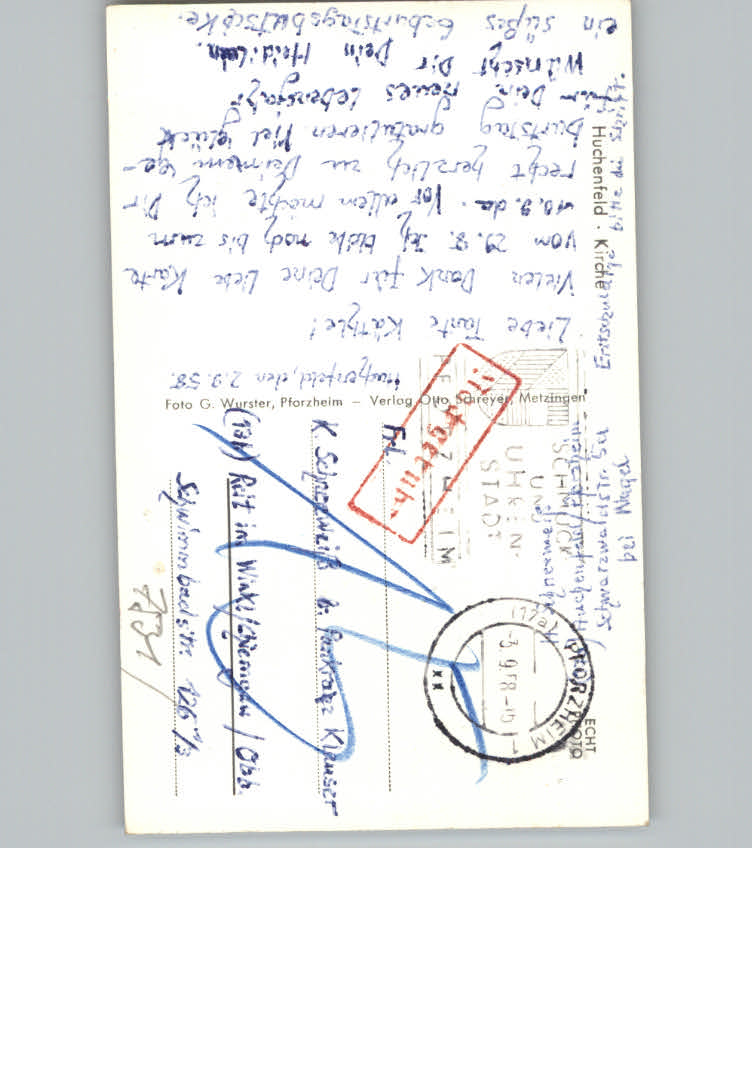 Huchenfeld, den 2.9.58.
Liebe Tante Käthle!
Vielen Dank für Deine liebe Karte
vom 29.8. Ich bleibe noch bis zum
10.9. da. Vor allem möchte ich Dir
recht herzlich zu Deinem Ge-
burtstag gratulieren. Viel Glück
für Dein neues Lebensjahr
wünscht Dir Dein
ein süßes Geburtstagsbutscherle.
Entschuldige bitte die Schrift.
Huchenfeld · Kirche
Foto G. Wurster, Pforzheim – Verlag Otto Schreyer, Metzingen
Huchenfeld
Schwarzwaldstr.
bei
SCHMUCK
UND
UHREN-
STADT
PFORZHEIM
(17a) PFORZHEIM
-3.9.58-10
xx
ECHT
FOTO
Nachgebühr
Frl.
K. Schneeweiß b. Pankraz Klauser
(13b) Reit im Winkl/Chiemgau / Obb.
Schwimmbadstr. 126 1/3